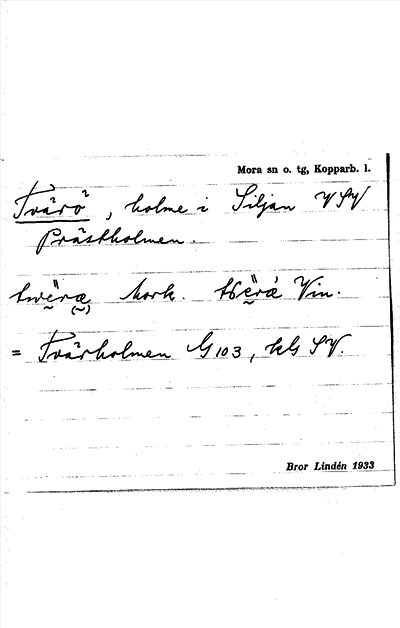 Mora sn o. tg, Kopparb. l.
Tvärö, holme i Siljan V SV
Prästholmen.
Mork. Vin.
= Tvärholmen G 103, kG SV.
Bror Lindén 1933